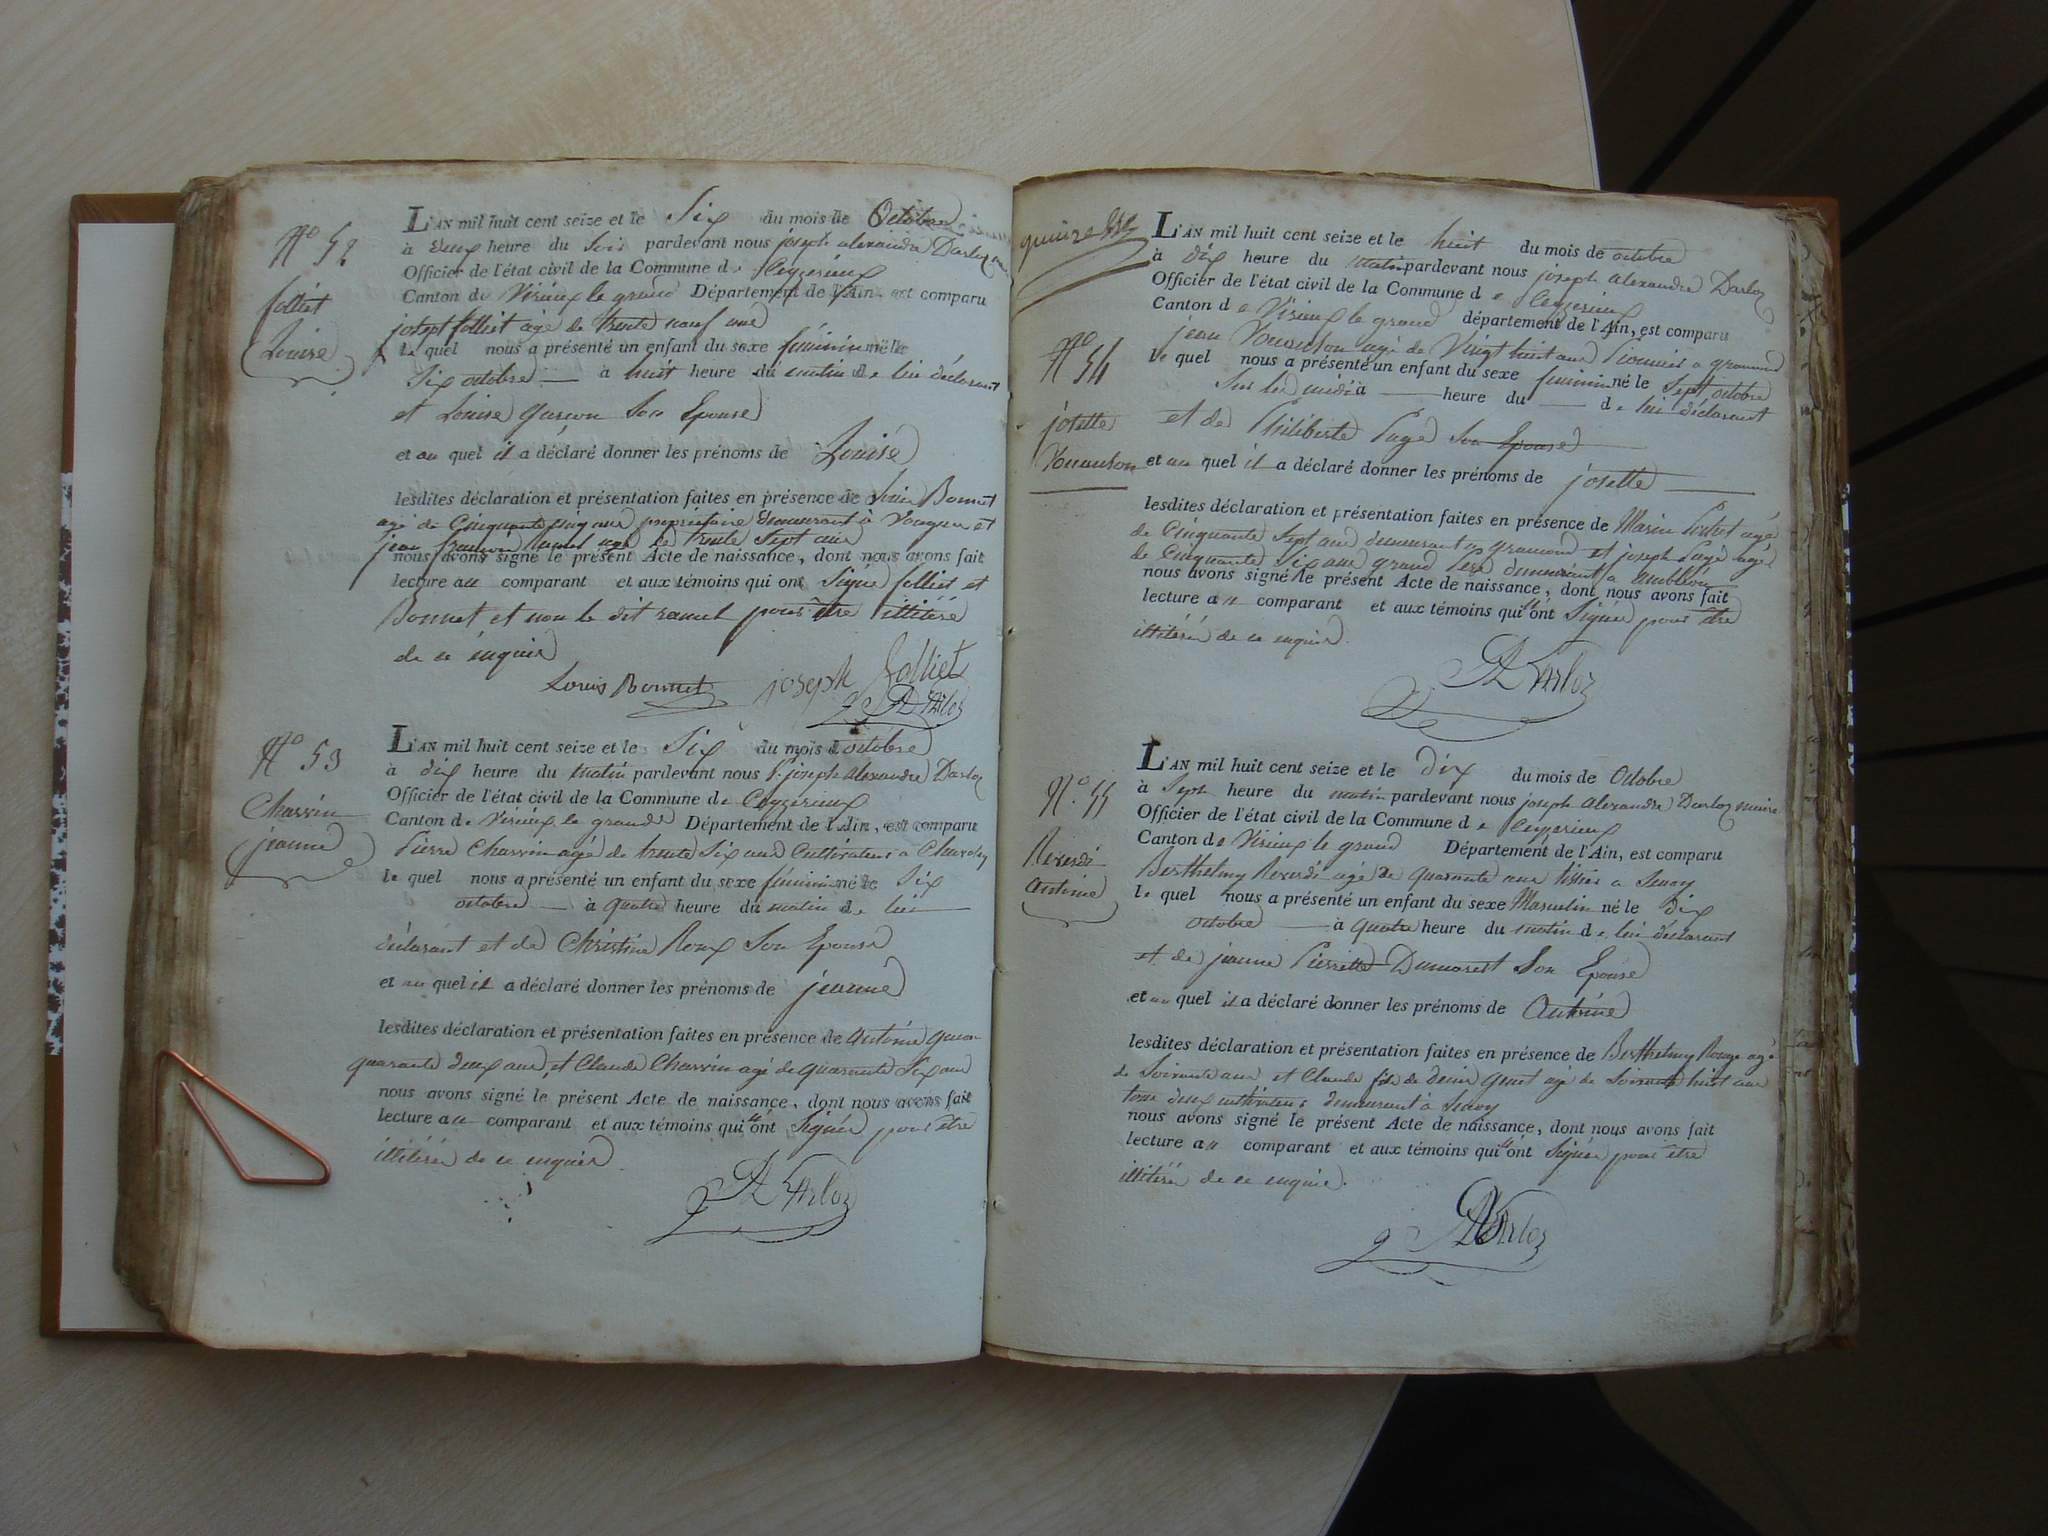 N° 52
folliet
Louise
L'AN mil huit cent seize et le Six du mois de Octobre
à deux heure du Soir pardevant nous joseph alexandre Darloz
Officier de l'état civil de la Commune de Ceyzerieux
Canton de Virieux le grand Département de l'Ain est comparu
joseph folliet agé de trente neuf ans
le quel nous a présenté un enfant du sexe féminin né le
Six octobre à huit heure du matin de lui déclarant
et Louise garçon Son Epouse
et au quel il a déclaré donner les prénoms de Louise
lesdites déclaration et présentation faites en présence de Bonnet
agé de Cinquante cinq ans propriétaire demeurant à et
jean françois Ramel agé de trente Sept ans
nous avons signé le présent Acte de naissance, dont nous avons fait
lecture au comparant et aux témoins qui ont Signé folliet et
Bonnet et non le dit ramel pour être illitéré
de ce enquis
Louis Bonnet joseph Folliet
Darloz
N° 53
Charvin
jeanne
L'AN mil huit cent seize et le Six du mois d octobre
à dix heure du matin pardevant nous joseph alexandre Darloz
Officier de l'état civil de la Commune de Ceyzerieux
Canton de Virieux le grand Département de l'Ain, est comparu
Pierre Charvin agé de trente Six ans Cultivateur a
le quel nous a présenté un enfant du sexe féminin né le Six
octobre à quatre heure du matin de lui
déclarant et de Christine Roux Son Epouse
et au quel il a déclaré donner les prénoms de jeanne
lesdites déclaration et présentation faites en présence de antoine
quarante deux ans, et Claude Charvin agé de quarante Six ans
nous avons signé le présent Acte de naissance, dont nous avons fait
lecture au comparant et aux témoins qui n'ont Signés pour être
illitérés de ce enquis
Darloz
quinze
N° 54
josette
Vouauson
L'AN mil huit cent seize et le huit du mois de octobre
à Dix heure du matin pardevant nous joseph alexandre Darloz
Officier de l'état civil de la Commune de Ceyzerieux
Canton de Virieux le grand département de l'Ain, est comparu
jean Vouauson agé de Vingt huit ans
le quel nous a présenté un enfant du sexe féminin né le Sept octobre
Sur les midi à heure du de lui déclarant
et de Philiberte Pagé Son Epouse
et au quel il a déclaré donner les prénoms de josette
lesdites déclaration et présentation faites en présence de Marin agé
de Cinquante Sept ans demeurant a et joseph Pagé agé
de Cinquante Six ans grand Pere demeurant a
nous avons signé le présent Acte de naissance, dont nous avons fait
lecture au comparant et aux témoins qui n'ont Signés pour être
illitérés de ce enquis.
Darloz
N°. 55
Reverdi
antoine
L'AN mil huit cent seize et le dix du mois de Octobre
à Sept heure du matin pardevant nous joseph alexandre Darloz maire
Officier de l'état civil de la Commune de Ceyzerieux
Canton de Virieux le grand Département de l'Ain, est comparu
Berthelmy Reverdi agé de quarante ans a
le quel nous a présenté un enfant du sexe Masculin né le Dix
octobre à quatre heure du matin de lui déclarant
et de jeanne Pierrette Dumarest Son Epouse
et au quel il a déclaré donner les prénoms de Antoine
lesdites déclaration et présentation faites en présence de Berthelmy Rouge agé
de Soixante ans et Claude fils de denis agé de Soixante huit ans
tous deux cultivateurs demeurant à
nous avons signé le présent Acte de naissance, dont nous avons fait
lecture au comparant et aux témoins qui n'ont Signés pour être
illitérés de ce enquis.
Darloz